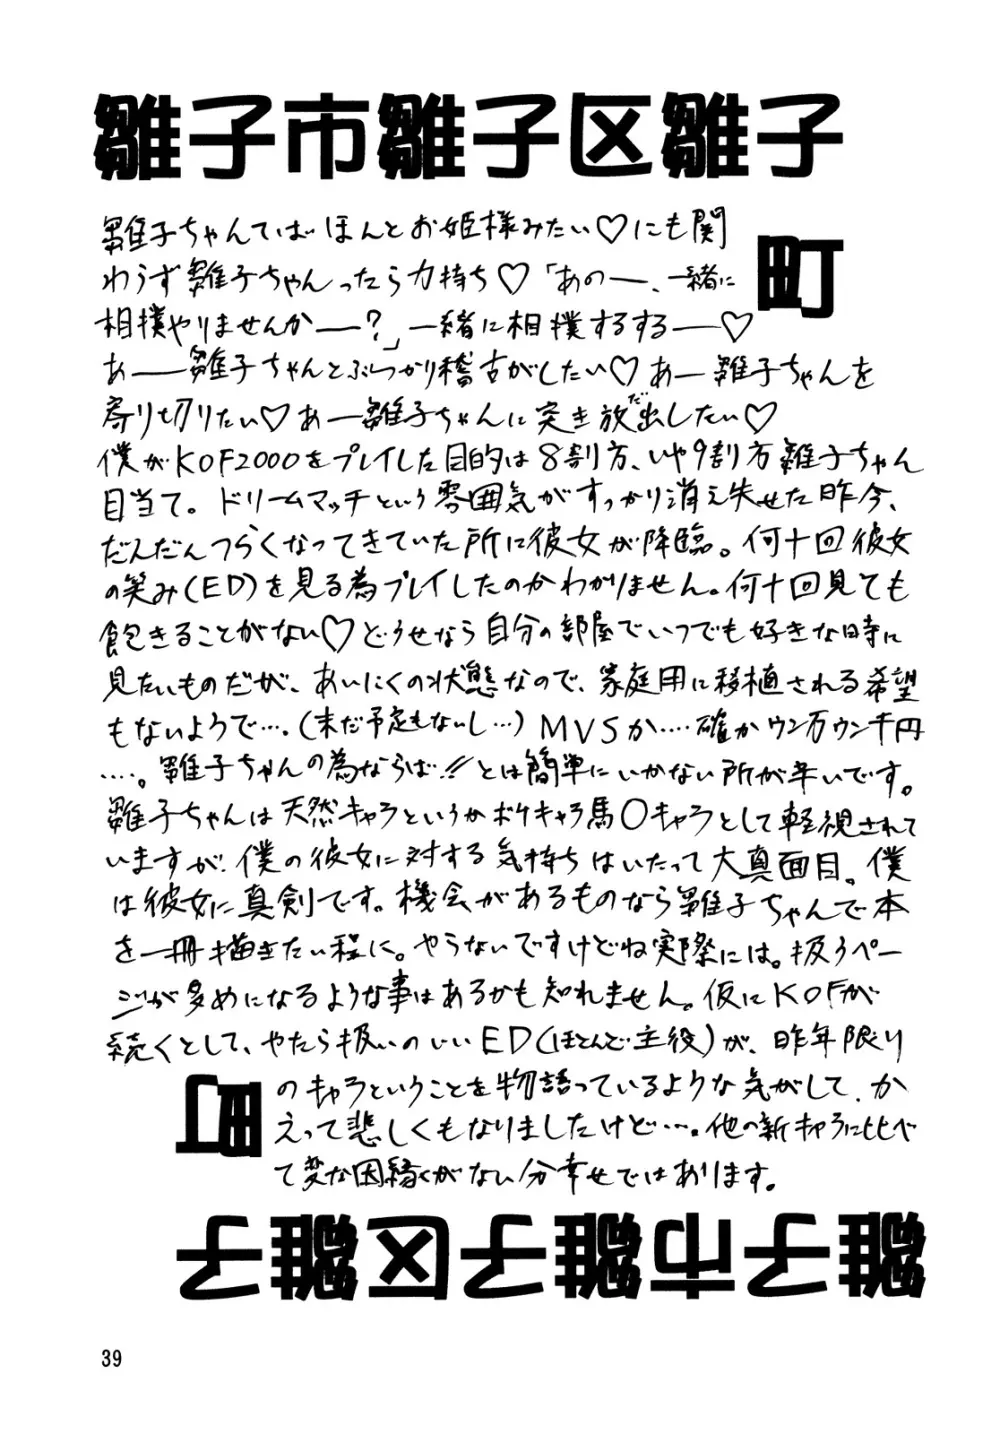 雛子市雛子区雛子
町
雛子ちゃんてばほんとお姫様みたい♡にも関
わらず雛子ちゃんったら力持ち♡「あのー、一緒に
相撲やりませんかー?」一緒に相撲するするー♡
あー雛子ちゃんとぶつかり稽古がしたい♡あー雛子ちゃんを
寄り切りたい♡あー雛子ちゃんに突き放だ出したい♡
僕がKOF2000をプレイした目的は8割方、いや9割方雛子ちゃん
目当て。ドリームマッチという雰囲気がすっかり消え失せた昨今、
だんだんつらくなってきていた所に彼女が降臨。何十回彼女
の笑み(ED)を見る為プレイしたのかわかりません。何十回見ても
飽きることがない♡どうせなら自分の部屋でいつでも好きな時に
見たいものだが、あいにくの状態なので、家庭用に移植される希望
もないようで…。(未だ予定もないし…)MVSか….確かウン万ウン千円
….。雛子ちゃんの為ならば!!とは簡単にいかない所が辛いです。
雛子ちゃんは天然キャラというかボケキャラ馬〇キャラとして軽視されて
いますが、僕の彼女に対する気持ちはいたって大真面目。僕
は彼女に真剣です。機会があるものなら雛子ちゃんで本
を一冊描きたい程に。やらないですけどね実際には。扱うペー
ジが多めになるような事はあるかも知れません。仮にKOFが
続くとして、やたら扱いのいいED(ほとんど主役)が、昨年限り
のキャラということを物語っているような気がして、か
えって悲しくもなりましたけど…。他の新キャラに比べ
て変な因縁がない分幸せではあります。
町
雛子市雛子区雛子
39